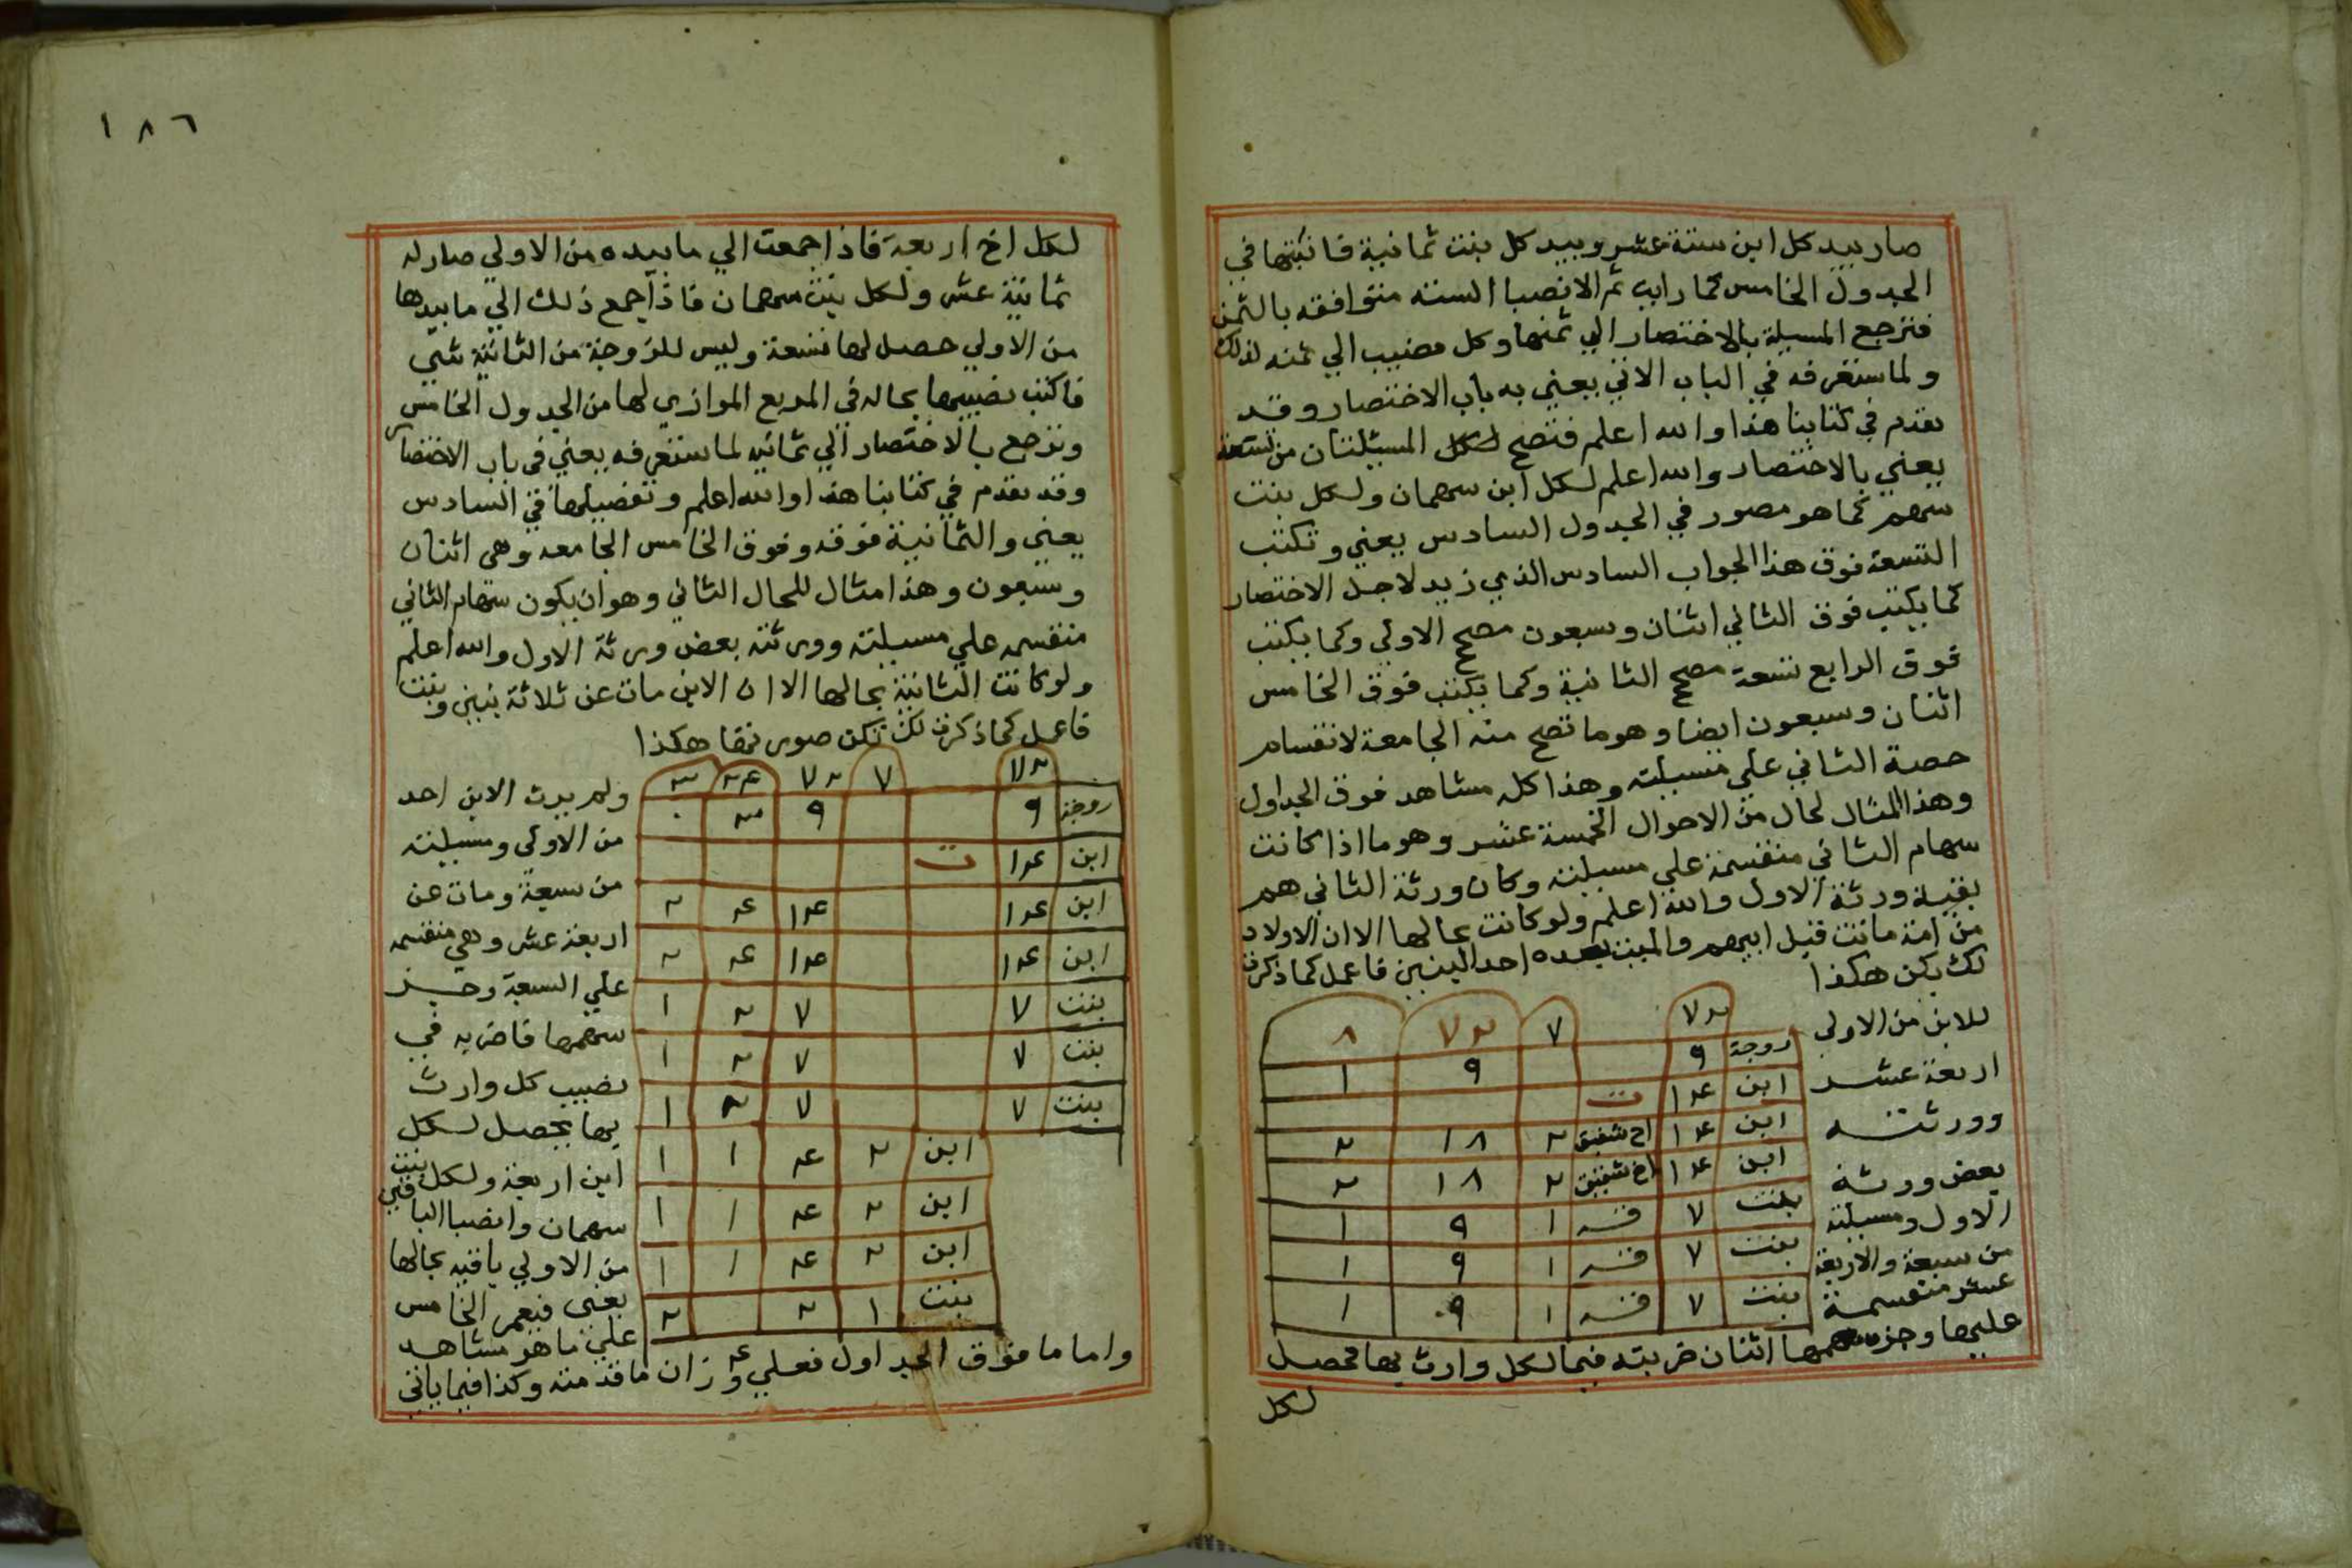 صار بيد كل ابن ستة عشر وبيد كل بنت ثمانية فاثبتها في
الجدول الخامس كما رايت ثم الانصبا الستة متوافقه بالثمن
فترجع المسيلة بالاختصار الي ثمنها وكل نصيب الي ثمنه لذلك
ولما ستعرفه في الباب الاتي يعني به باب الاختصار وقد
تقدم في كتابنا هذا والله اعلم فتصح لكل المسيلتان من تسعة
يعني بالاختصار والله اعلم لكل ابن سهمان ولكل بنت
سهم كما هو مصور في الجدول السادس يعني وتكتب
التسعة فوق هذا الجواب السادس الذي زيد لاجل الاختصار
كما يكتب فوق الثاني اثنان وسبعون مصح الاولي وكما يكتب
فوق الرابع تسعة مصح الثانية وكما تكتب فوق الخامس
اثنان وسبعون ايضا وهو ما تصح منه الجامعة لانقسام
حصة الثاني علي مسيلته وهذا كله مشاهد فوق الجداول
وهذا المثال لحال من الاحوال الخمسة عشر وهو ما اذا كانت
سهام الثاني منقسمة علي مسيلته وكان ورثة الثاني هم
بقية ورثة الاول والله اعلم ولو كانت بحالها الا ان الاولاد
من امة ماتت قبل ابيهم والميت بعده احد البنين فاعمل كما ذكرت
لك يكن هكذا
للابن من الاولي
اربعة عشر
وورثته
بعض ورثة
الاول ومسيلته
من سبعة والاربعة
عشر منقسمة
٧٢ ٧ ٧٢ ٨
زوجة ٩ ٩ ١
ابن ١٤ ت
ابن ١٤ اخ شقيق ٢ ١٨ ٢
ابن ١٤ اخ شقيق ٢ ١٨ ٢
بنت ٧ قه ١ ٩ ١
بنت ٧ قه ١ ٩ ١
بنت ٧ قه ١ ٩ ١
عليها وجزء سهمها اثنان ضربته فيما لكل وارث بها فحصل
لكل
١٨٦
لكل اخ اربعة فاذا جمعت الي ما بيده من الاولي صار له
ثمانية عشر ولكل بنت سهمان فاذا جمع ذلك الي ما بيدها
من الاولي حصل لها تسعة وليس للزوجة من الثانية شي
فاكتب نصيبها بحاله في المربع الموازي لها من الجدول الخامس
وترجع بالاختصار الي ثمانيه لما ستعرفه يعني في باب الاختصار
وقد تقدم في كتابنا هذا والله اعلم وتفصيلها في السادس
يعني والثمانية فوقه وفوق الخامس الجامعه وهي اثنان
وسبعون وهذا مثال للحال الثاني وهو ان يكون سهام الثاني
منقسمه علي مسيلته وورثته بعض ورثة الاول والله اعلم
ولو كانت الثانية بحالها الا ان الابن مات عن ثلاثة بنين وبنت
فاعمل كما ذكرت لك تكن صورتها هكذا
ولم يرث الابن احد
من الاولي ومسيلته
من سبعة ومات عن
اربعة عشر وهي منقسمه
علي السبعة وجز
سهمها فاضربه في
نصيب كل وارث
بها يحصل لكل
ابن اربعة ولكل بنت
سهمان وانصبا الباقي
من الاولي باقيه بحالها
يعني فيعمر الخامس
علي ما هو مشاهد
٧٢ ٧ ٧٢ ٢٤ ٣
زوجة ٩ ٩ ٣ ٠
ابن ١٤ ت
ابن ١٤ ١٤ ٤ ٢
ابن ١٤ ١٤ ٤ ٢
بنت ٧ ٧ ٢ ١
بنت ٧ ٧ ٢ ١
بنت ٧ ٧ ٢ ١
ابن ٢ ٤ ١ ١
ابن ٢ ٤ ١ ١
ابن ٢ ٤ ١ ١
بنت ١ ٢ ٢
واما ما فوق الجداول فعلي وزان ما قدمته وكذا فيما ياتي